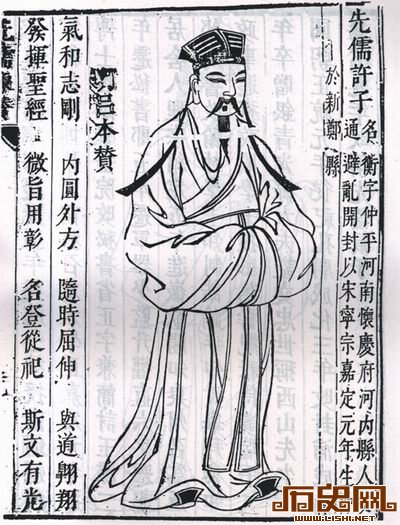 先儒許子
名衡字仲平河南懷慶府河内縣人父
通避亂開封以宋寧宗嘉定元年生
於新鄭縣
呂本贊
氣和志剛 内圓外方 隨時屈伸 與道翱翔
發揮聖經 微旨用彰 名登從祀 斯文有光
历史网
WWW.LISHI.NET